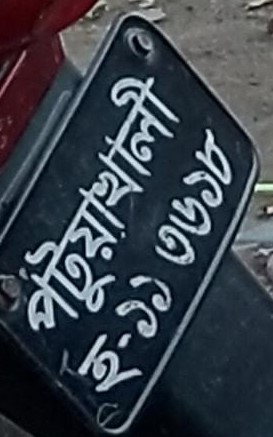 পটুয়াখালী
হ-১১ ৩৬১৮